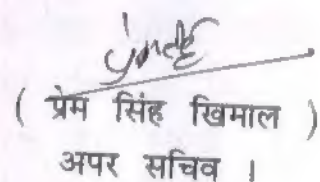 ( प्रेम सिंह खिमाल )
अपर सचिव ।